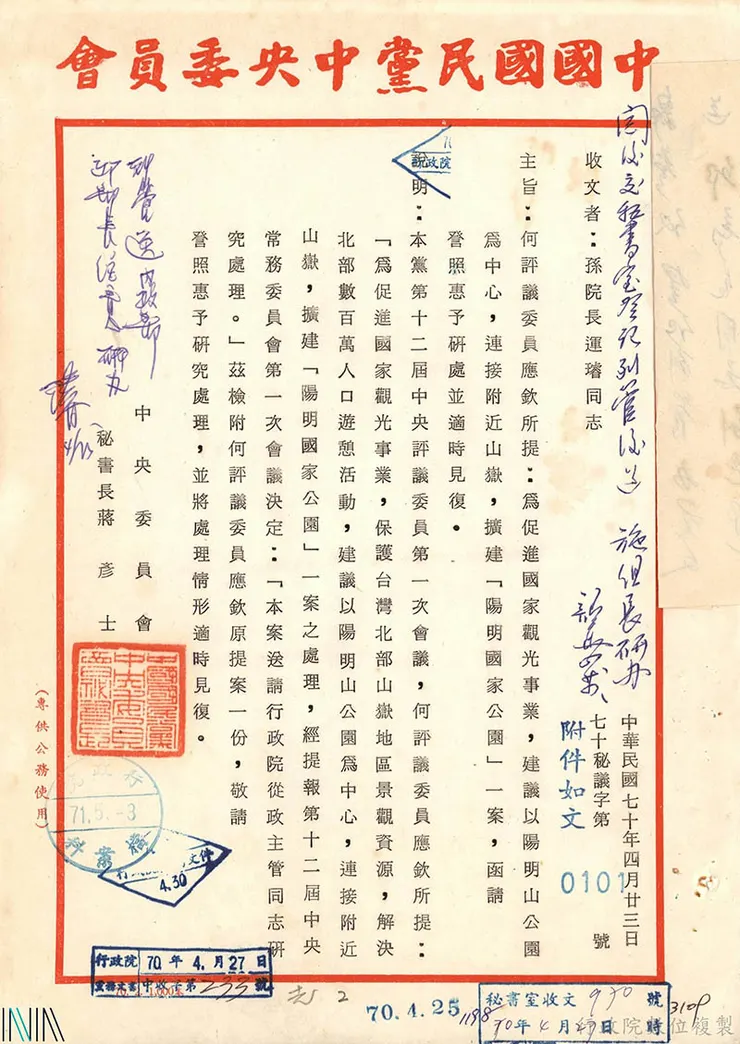 中國國民黨中央委員會
收文者：孫院長運璿同志
中華民國七十年四月廿三日
七十秘議字第 0101 號
附件如文
主旨：何評議委員應欽所提：為促進國家觀光事業，建議以陽明山公園
為中心，連接附近山嶽，擴建「陽明國家公園」一案，函請
詧照惠予研處並適時見復。
說明：本黨第十二屆中央評議委員第一次會議，何評議委員應欽所提：
「為促進國家觀光事業，保護台灣北部山嶽地區景觀資源，解決
北部數百萬人口遊憩活動，建議以陽明山公園為中心，連接附近
山嶽，擴建「陽明國家公園」一案之處理，經提報第十二屆中央
常務委員會第一次會議決定：「本案送請行政院從政主管同志研
究處理。」茲檢附何評議委員應欽原提案一份，敬請
詧照惠予研究處理，並將處理情形適時見復。
中央委員會
秘書長蔣彥士
（專供公務使用）
71.5.-3
檔案科
4.30
行政院 70年4月27日
中收字第233號
70.4.25
1198
秘書室收文 970 號
70年4月27日 時
310P
行政院數位複製